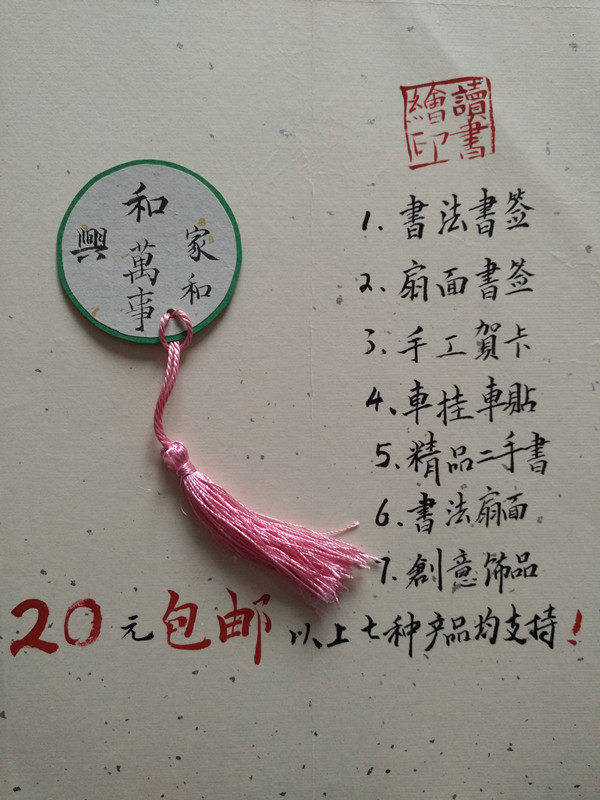 讀書
繪印
家和
和萬事
興
1、書法書签
2、扇面書签
3、手工賀卡
4、車挂車貼
5、精品二手書
6、書法扇面
7、創意饰品
20元包邮 以上七种产品均支持！